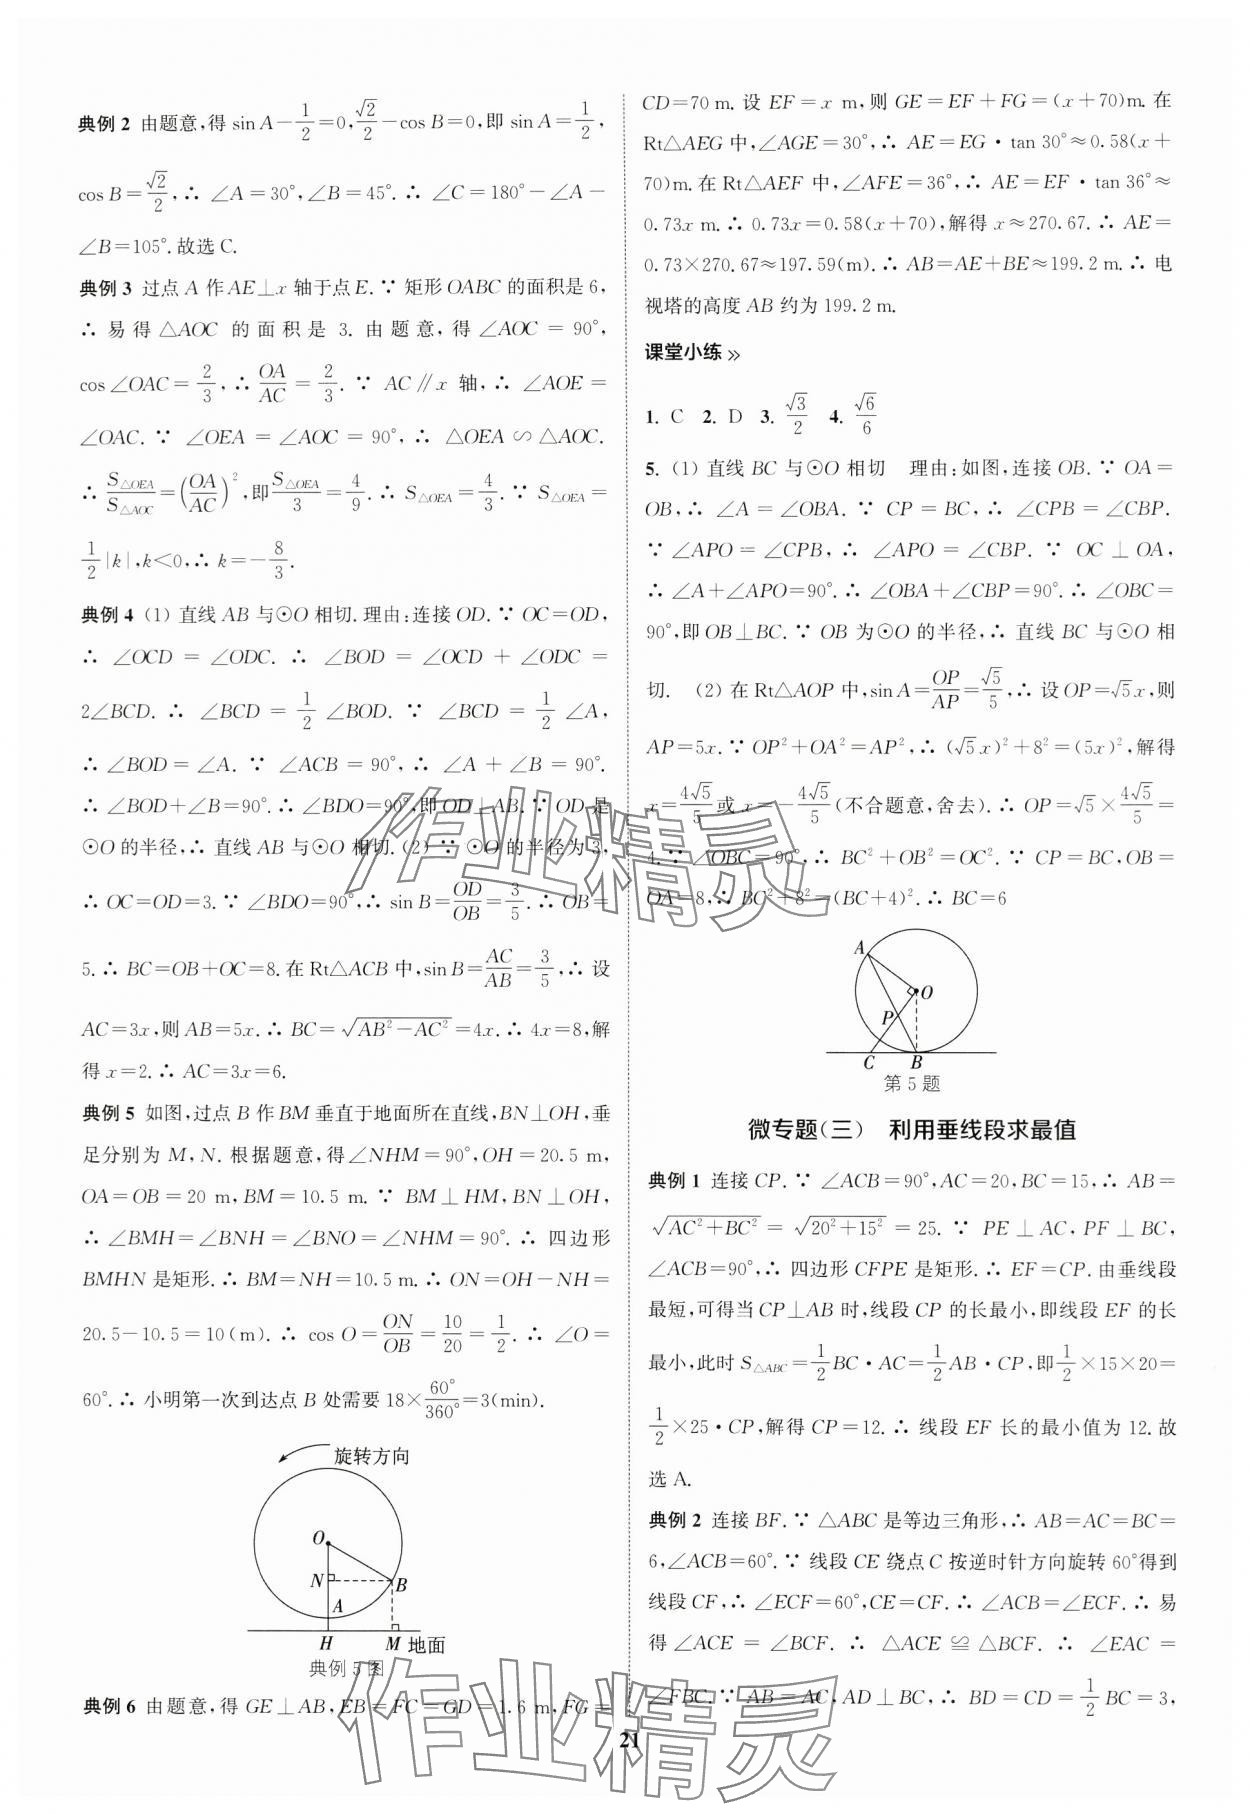 典例 2 由题意,得 sin A－1/2＝0,√2/2－cos B＝0,即 sin A＝1/2,
cos B＝√2/2,∴ ∠A＝30°,∠B＝45°.∴ ∠C＝180°－∠A－
∠B＝105°.故选 C.
典例 3 过点 A 作 AE⊥x 轴于点 E.∵ 矩形 OABC 的面积是 6,
∴ 易得 △AOC 的面积是 3. 由题意,得 ∠AOC＝90°,
cos∠OAC＝2/3,∴ OA/AC＝2/3.∵ AC∥x 轴,∴ ∠AOE＝
∠OAC.∵ ∠OEA＝∠AOC＝90°,∴ △OEA∽△AOC.
∴ S△OEA/S△AOC＝(OA/AC)²,即 S△OEA/3＝4/9.∴ S△OEA＝4/3.∵ S△OEA＝
1/2|k|,k＜0,∴ k＝－8/3.
典例 4 (1) 直线 AB 与⊙O 相切.理由:连接 OD.∵ OC＝OD,
∴ ∠OCD＝∠ODC.∴ ∠BOD＝∠OCD＋∠ODC＝
2∠BCD.∴ ∠BCD＝1/2∠BOD.∵ ∠BCD＝1/2∠A,
∴ ∠BOD＝∠A.∵ ∠ACB＝90°,∴ ∠A＋∠B＝90°.
∴ ∠BOD＋∠B＝90°.∴ ∠BDO＝90°,即 OD⊥AB.∵ OD 是
⊙O 的半径,∴ 直线 AB 与⊙O 相切.(2) ∵ ⊙O 的半径为 3,
∴ OC＝OD＝3.∵ ∠BDO＝90°,∴ sin B＝OD/OB＝3/5.∴ OB＝
5.∴ BC＝OB＋OC＝8.在 Rt△ACB 中,sin B＝AC/AB＝3/5,∴ 设
AC＝3x,则 AB＝5x.∴ BC＝√(AB²－AC²)＝4x.∴ 4x＝8,解
得 x＝2.∴ AC＝3x＝6.
典例 5 如图,过点 B 作 BM 垂直于地面所在直线,BN⊥OH,垂
足分别为 M,N. 根据题意,得∠NHM＝90°,OH＝20.5 m,
OA＝OB＝20 m,BM＝10.5 m.∵ BM⊥HM,BN⊥OH,
∴ ∠BMH＝∠BNH＝∠BNO＝∠NHM＝90°.∴ 四边形
BMHN 是矩形.∴ BM＝NH＝10.5 m.∴ ON＝OH－NH＝
20.5－10.5＝10(m).∴ cos O＝ON/OB＝10/20＝1/2.∴ ∠O＝
60°.∴ 小明第一次到达点 B 处需要 18×60°/360°＝3(min).
旋转方向
O
N
B
A
H
M
地面
典例 5 图
典例 6 由题意,得 GE⊥AB,EB＝FC＝GD＝1.6 m,FG＝
CD＝70 m.设 EF＝x m,则 GE＝EF＋FG＝(x＋70)m.在
Rt△AEG 中,∠AGE＝30°,∴ AE＝EG·tan 30°≈0.58(x＋
70)m.在 Rt△AEF 中,∠AFE＝36°,∴ AE＝EF·tan 36°≈
0.73x m.∴ 0.73x＝0.58(x＋70),解得 x≈270.67.∴ AE＝
0.73×270.67≈197.59(m).∴ AB＝AE＋BE≈199.2 m.∴ 电
视塔的高度 AB 约为 199.2 m.
课堂小练 »
1. C 2. D 3. √3/2 4. √6/6
5. (1) 直线 BC 与⊙O 相切 理由:如图,连接 OB.∵ OA＝
OB,∴ ∠A＝∠OBA.∵ CP＝BC,∴ ∠CPB＝∠CBP.
∵ ∠APO＝∠CPB,∴ ∠APO＝∠CBP.∵ OC⊥OA,
∴ ∠A＋∠APO＝90°.∴ ∠OBA＋∠CBP＝90°.∴ ∠OBC＝
90°,即 OB⊥BC.∵ OB 为⊙O 的半径,∴ 直线 BC 与⊙O 相
切. (2) 在 Rt△AOP 中,sin A＝OP/AP＝√5/5,∴ 设 OP＝√5x,则
AP＝5x.∵ OP²＋OA²＝AP²,∴ (√5x)²＋8²＝(5x)²,解得
x＝4√5/5或 x＝－4√5/5(不合题意,舍去).∴ OP＝√5×4√5/5＝
4.∵ ∠OBC＝90°,∴ BC²＋OB²＝OC².∵ CP＝BC,OB＝
OA＝8,∴ BC²＋8²＝(BC＋4)².∴ BC＝6
A
O
P
C
B
第 5 题
微专题(三) 利用垂线段求最值
典例 1 连接 CP.∵ ∠ACB＝90°,AC＝20,BC＝15,∴ AB＝
√(AC²＋BC²)＝√(20²＋15²)＝25.∵ PE⊥AC,PF⊥BC,
∠ACB＝90°,∴ 四边形 CFPE 是矩形.∴ EF＝CP.由垂线段
最短,可得当 CP⊥AB 时,线段 CP 的长最小,即线段 EF 的长
最小,此时 S△ABC＝1/2BC·AC＝1/2AB·CP,即1/2×15×20＝
1/2×25·CP,解得 CP＝12.∴ 线段 EF 长的最小值为 12.故
选 A.
典例 2 连接 BF.∵ △ABC 是等边三角形,∴ AB＝AC＝BC＝
6,∠ACB＝60°.∵ 线段 CE 绕点 C 按逆时针方向旋转 60°得到
线段 CF,∴ ∠ECF＝60°,CE＝CF.∴ ∠ACB＝∠ECF.∴ 易
得 ∠ACE＝∠BCF.∴ △ACE≌△BCF.∴ ∠EAC＝
∠FBC.∵ AB＝AC,AD⊥BC,∴ BD＝CD＝1/2BC＝3,
21
作业精灵
作业精灵